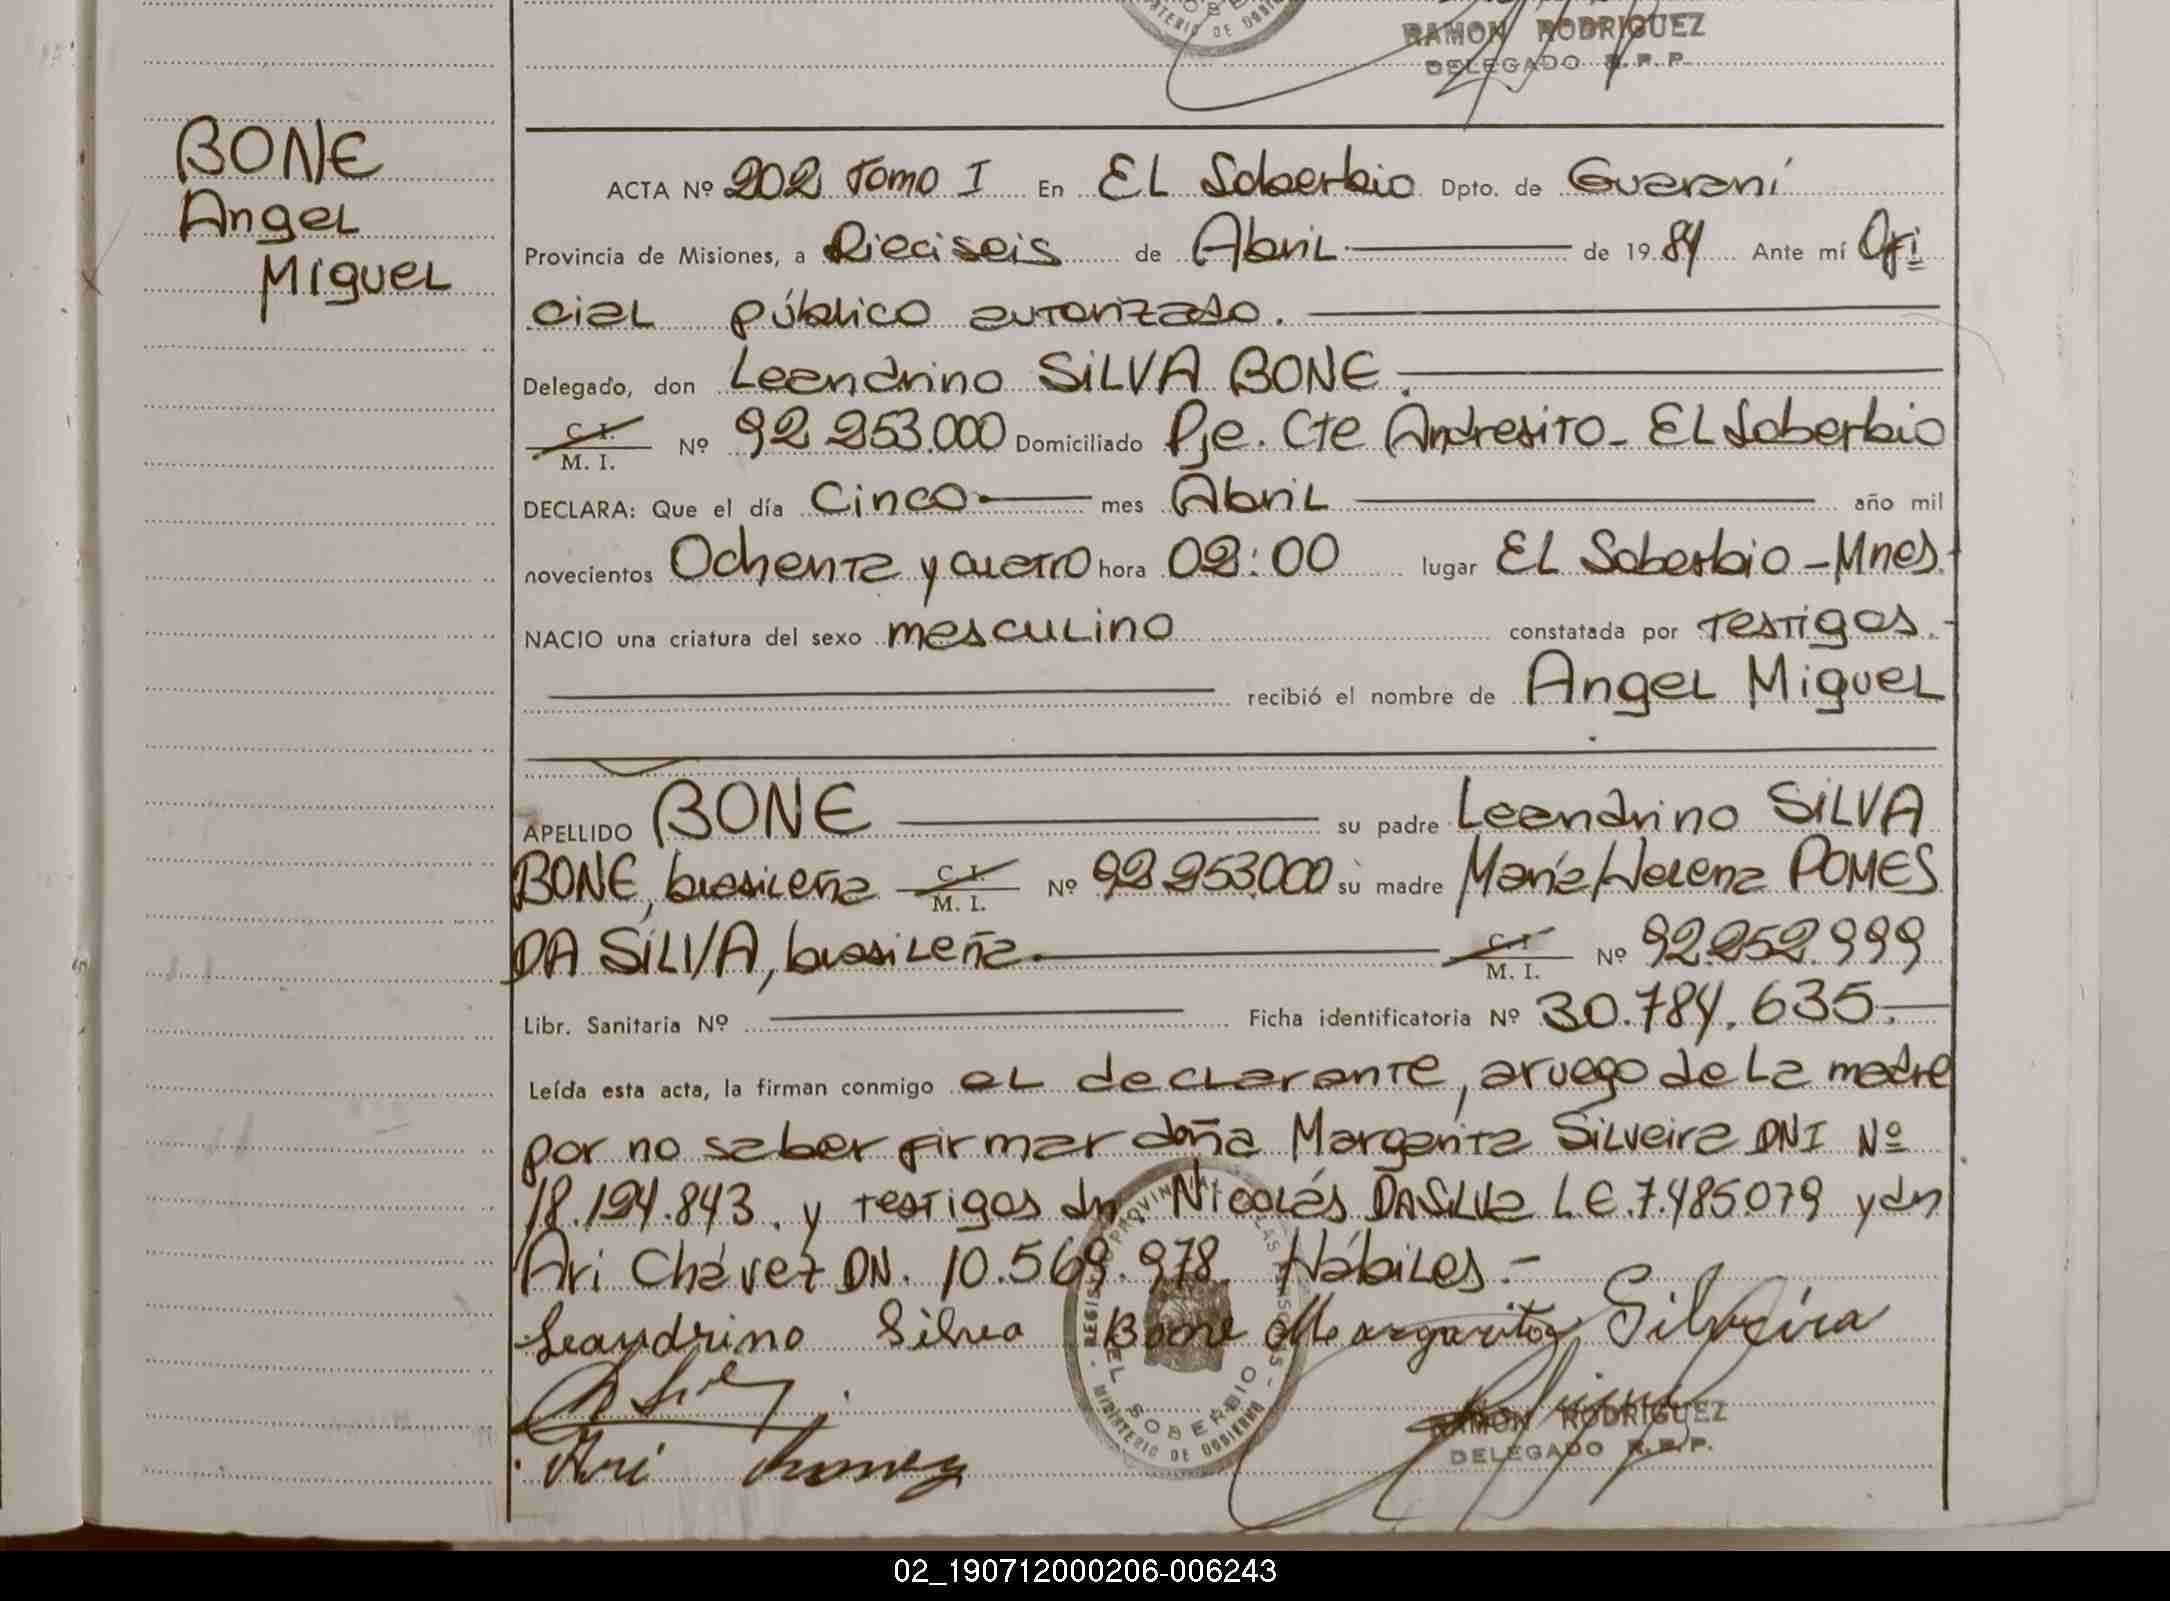 MINISTERIO DE GOBIERNO
RAMON RODRIGUEZ
DELEGADO R.P.P.
BONE
Angel
Miguel
ACTA Nº 202 Tomo I En EL Soberbio Dpto. de Guaraní
Provincia de Misiones, a Dieciseis de Abril de 19 84 Ante mí Ofi
cial público autorizado.
Delegado, don Leandrino SILVA BONE.
C. I.
M. I. Nº 92.253.000 Domiciliado Pje. Cte Andresito - EL Soberbio
DECLARA: Que el día Cinco mes Abril año mil
novecientos Ochenta y cuatro hora 02:00 lugar EL Soberbio - Mnes.
NACIO una criatura del sexo masculino constatada por testigos.-
recibió el nombre de Angel Miguel
APELLIDO BONE su padre Leandrino SILVA
BONE, brasileña C. I.
M. I. Nº 92.253.000 su madre María Helena POMES
DA SILVA, brasileña. C. I.
M. I. Nº 92.252.999
Libr. Sanitaria Nº Ficha identificatoria Nº 30.784.635.-
Leída esta acta, la firman conmigo el declarante, a ruego de la madre
por no saber firmar doña Margarita Silveira DNI Nº
18.194.843. y testigos dn. Nicolás DASILVa L.E. 7.485.079 y dn
Ari Chávez DN. 10.569.978 Hábiles.-
Leandrino Silva Bone Margarita Silveira
Ari
REGISTRO PROVINCIAL DE LAS PERSONAS
EL SOBERBIO
MINISTERIO DE GOBIERNO
RAMON RODRIGUEZ
DELEGADO R.P.P.
02_190712000206-006243